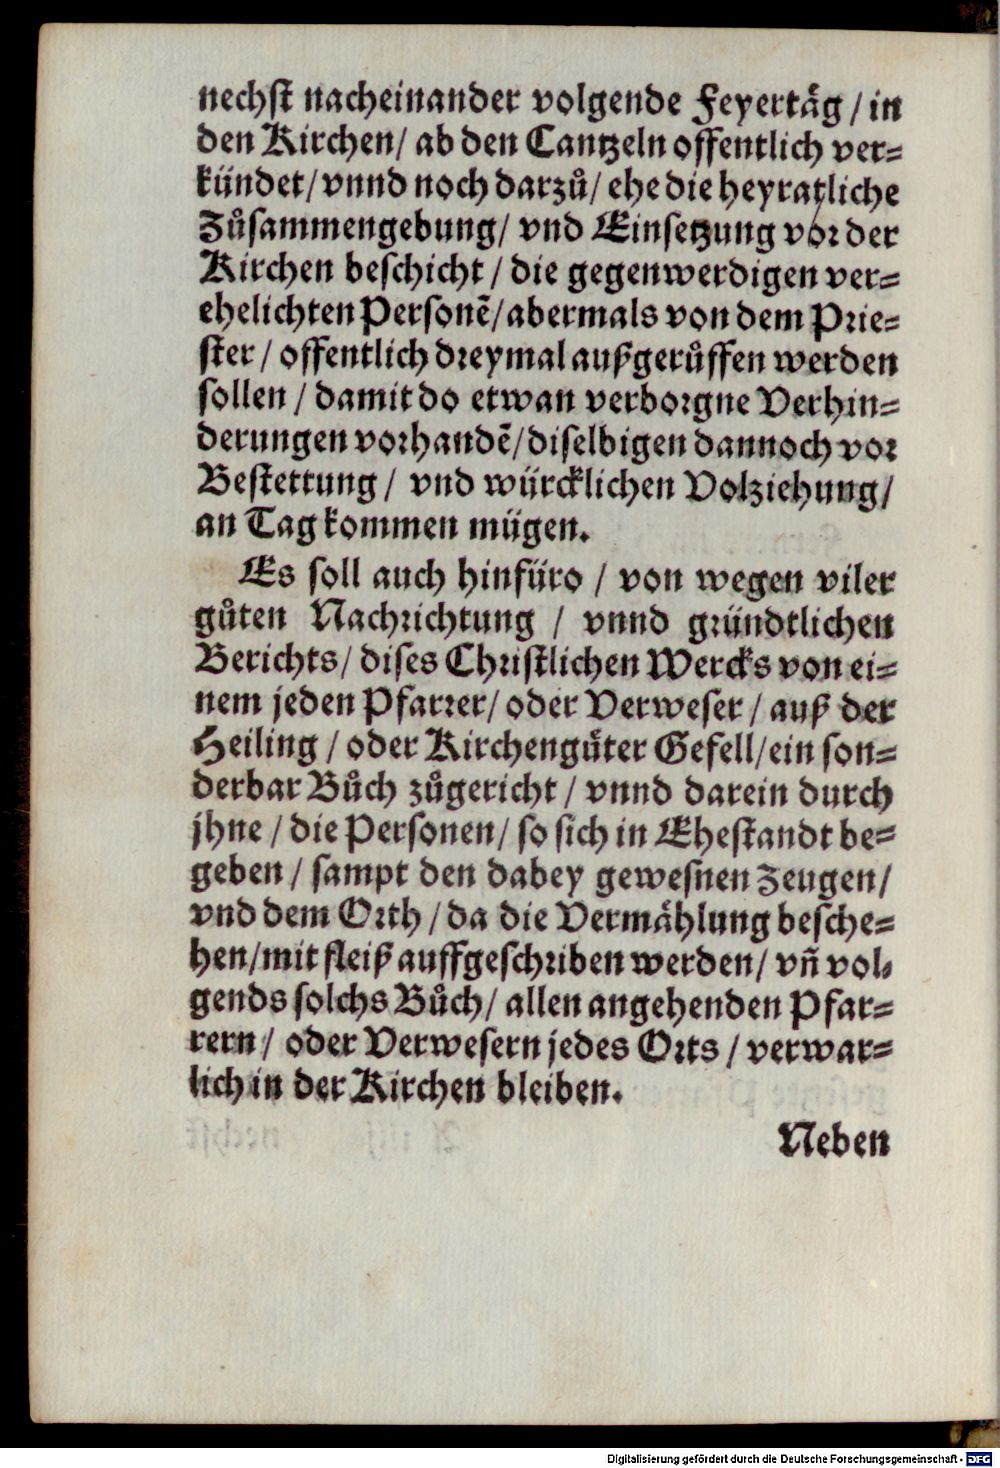 nechst nacheinander volgende Feyertåg / in
den Kirchen / ab den Cantzeln offentlich ver=
kündet / vnnd noch darzů / ehe die heyratliche
Zůsammengebung / vnd Einsetzung vor der
Kirchen beschicht / die gegenwerdigen ver=
ehelichten Personē / abermals von dem Prie=
ster / offentlich dreymal außgerůffen werden
sollen / damit do etwan verborgne Verhin=
derungen vorhandē / diselbigen dannoch vor
Bestettung / vnd würcklichen Volziehung /
an Tag kommen mügen.
Es soll auch hinfüro / von wegen viler
gůten Nachrichtung / vnnd gründtlichen
Berichts / dises Christlichen Wercks von ei=
nem jeden Pfarrer / oder Verweser / auß der
Heiling / oder Kirchengůter Gefell / ein son=
derbar Bůch zůgericht / vnnd darein durch
jhne / die Personen / so sich in Ehestandt be=
geben / sampt den dabey gewesnen Zeugen /
vnd dem Orth / da die Vermåhlung besche=
hen / mit fleiß auffgeschriben werden / vñ vol=
gends solchs Bůch / allen angehenden Pfar=
rern / oder Verwesern jedes Orts / verwar=
lich in der Kirchen bleiben.
Neben
Digitalisierung gefördert durch die Deutsche Forschungsgemeinschaft - DFG